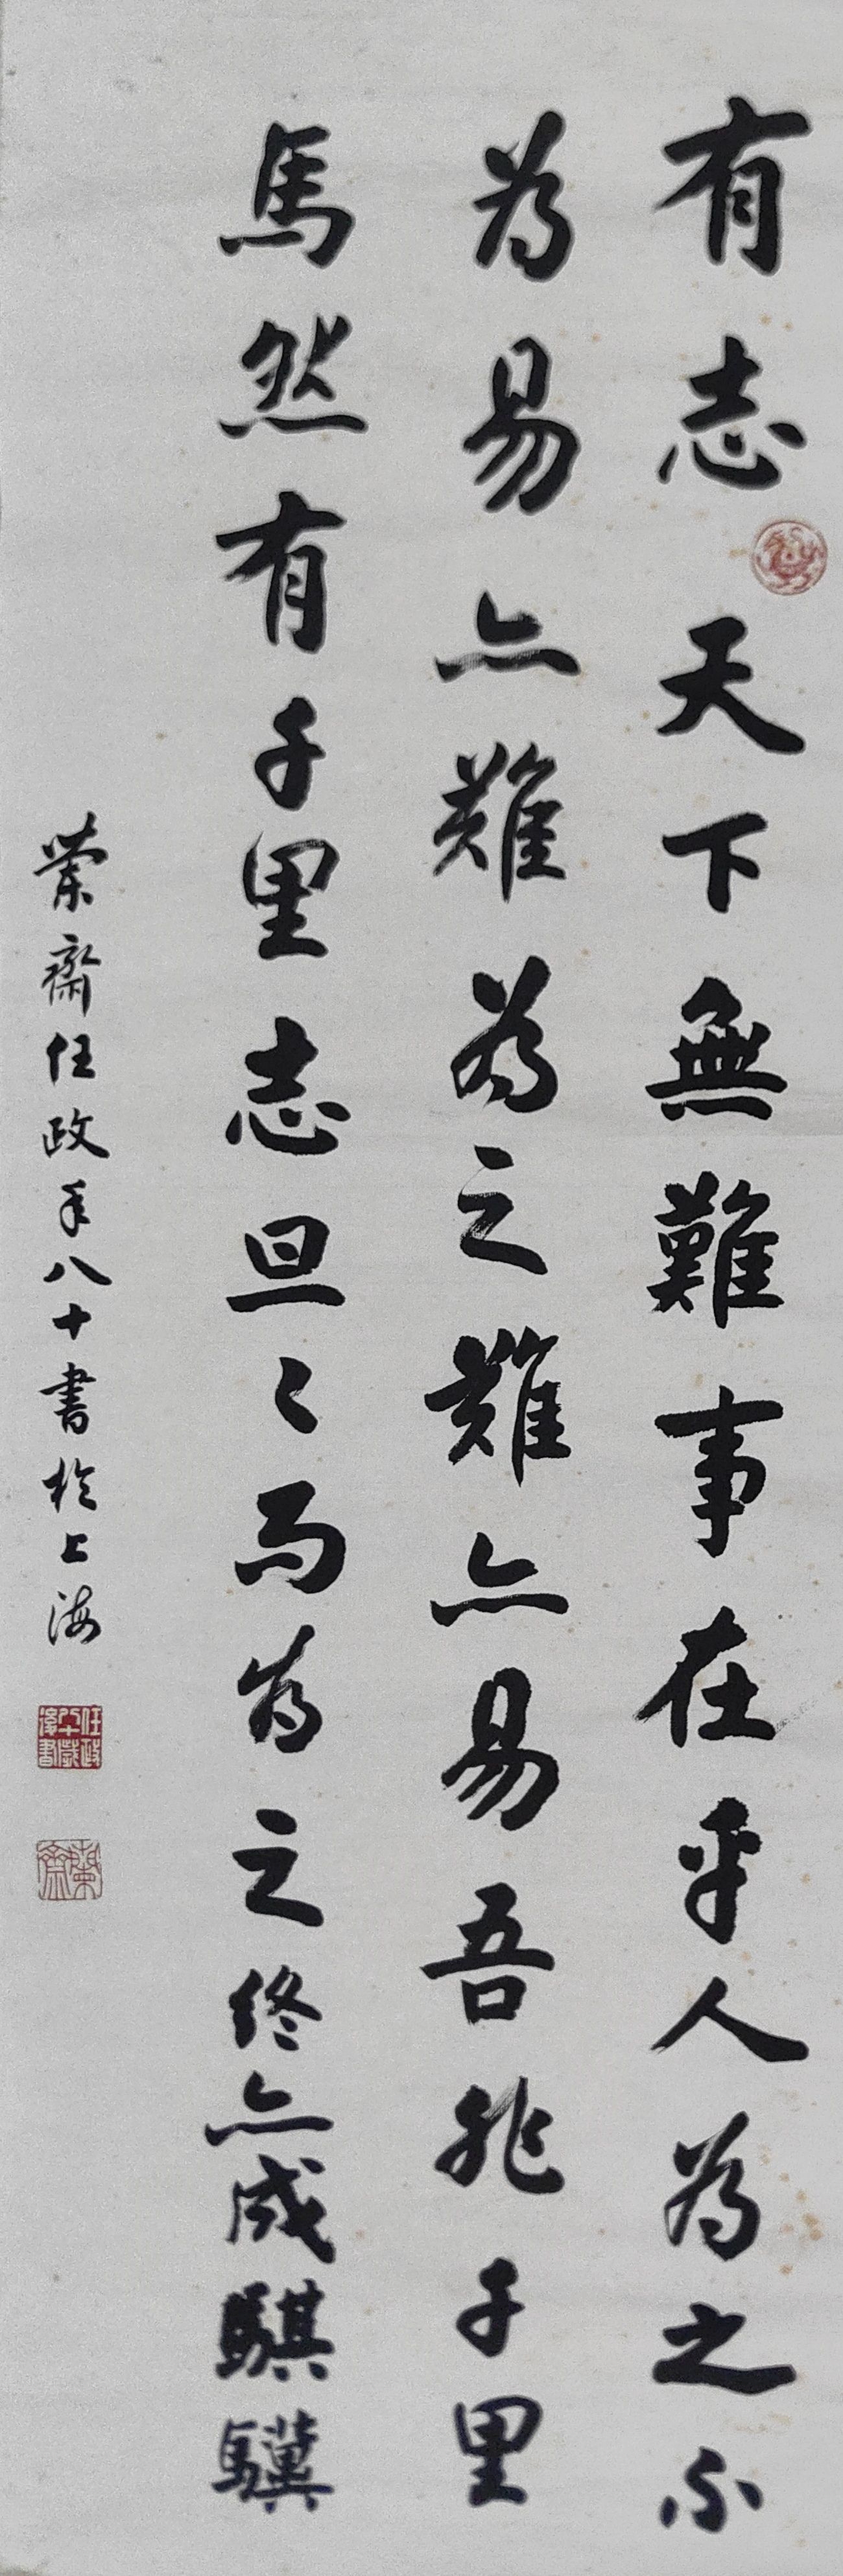 有志天下無難事在乎人為之不
為易亦難為之難亦易吾非千里
馬然有千里志旦〻而為之終亦成騏驥
蘭齋任政年八十書於上海
任政八十歲後書
蘭齋